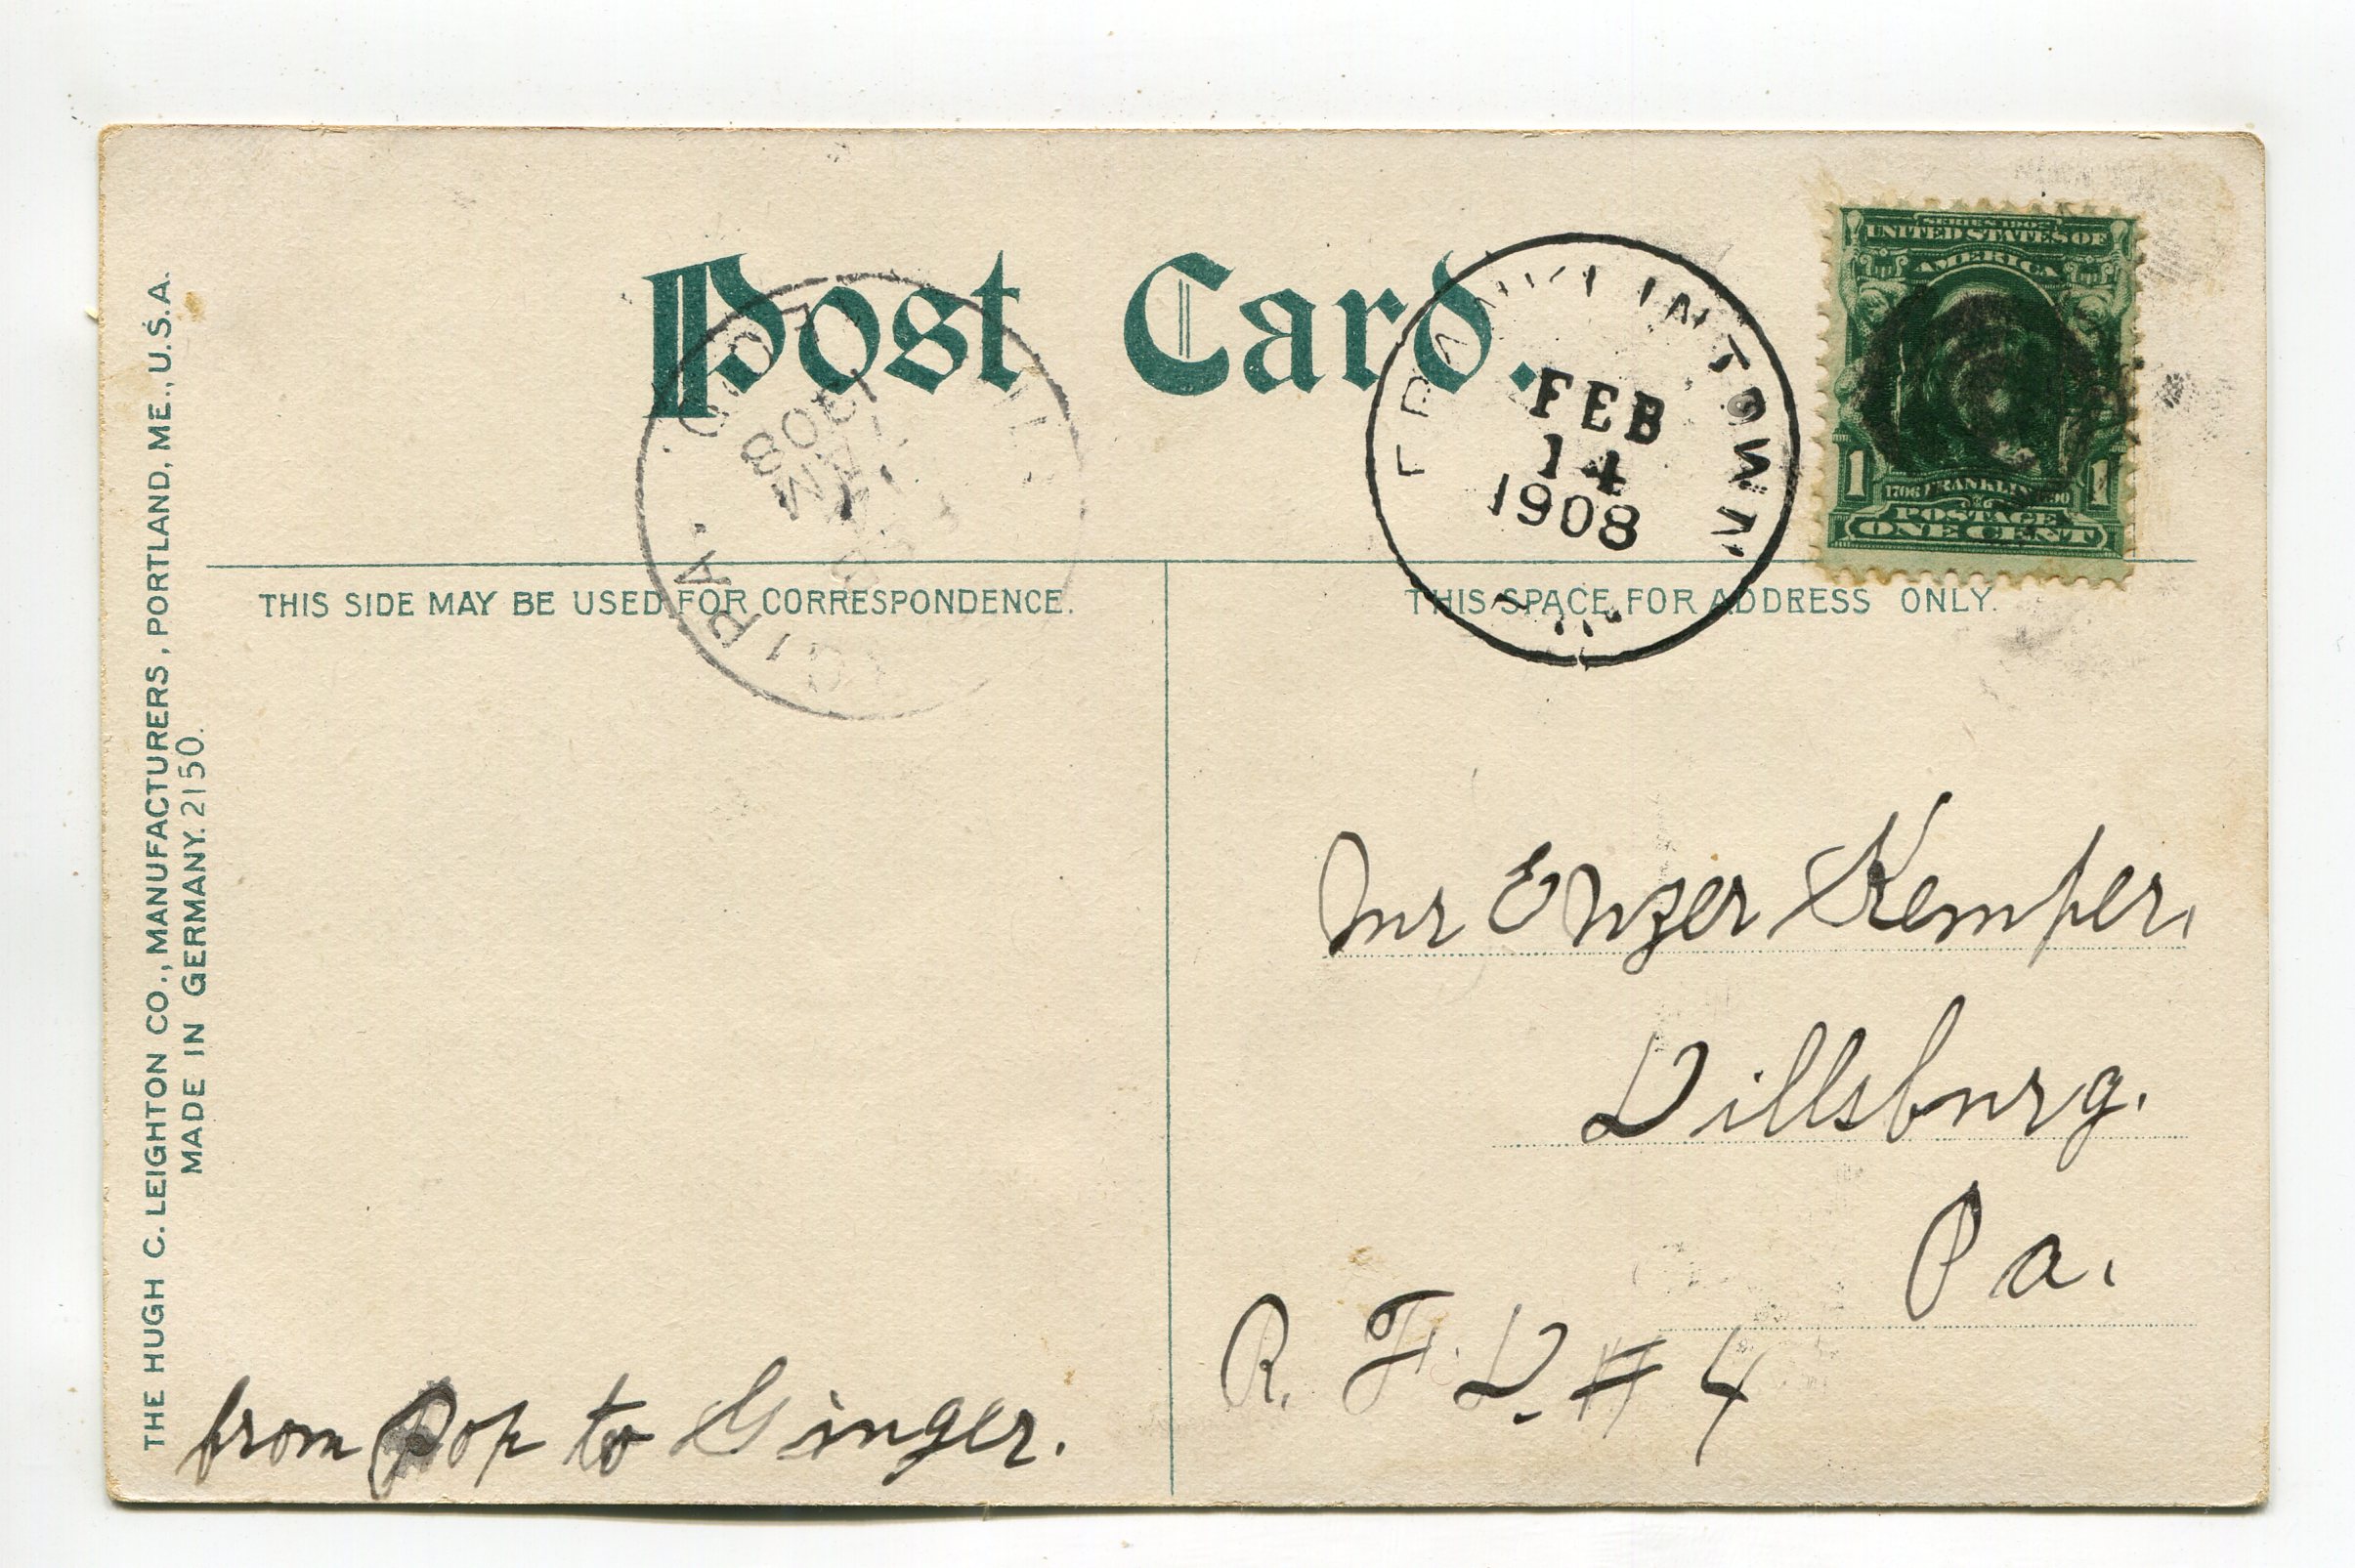 Post Card.
FRANKLINTOWN
FEB
14
1908
SERIES 1902
UNITED STATES OF
AMERICA
1 1
1706 FRANKLIN 1790
POSTAGE
ONE CENT
PA.
1908
AM
THIS SIDE MAY BE USED FOR CORRESPONDENCE.
THIS SPACE FOR ADDRESS ONLY.
THE HUGH C. LEIGHTON CO., MANUFACTURERS, PORTLAND, ME., U.S.A.
MADE IN GERMANY. 2150.
Mr Enzer Kemper,
Dillsburg.
Pa.
R. F. D. # 4
from Pop to Ginger.